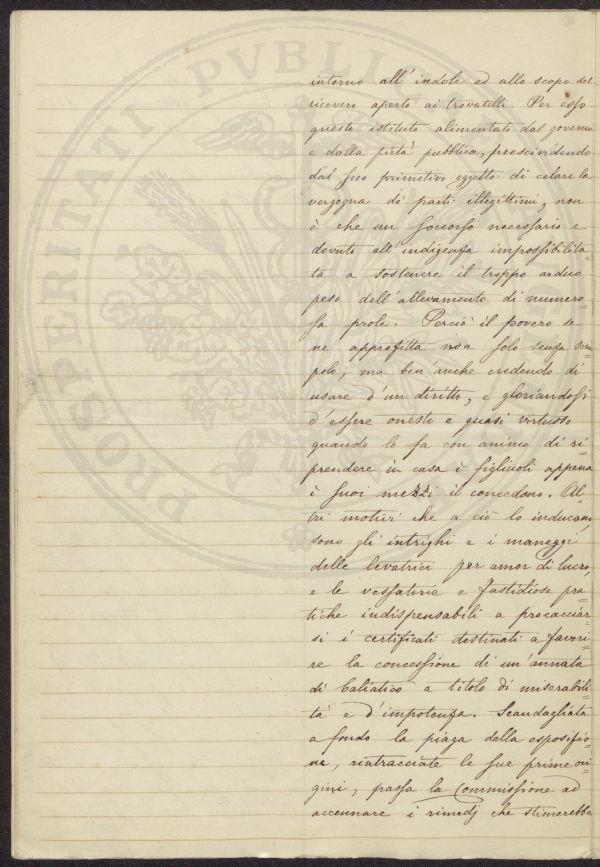 intorno all'indole ed allo scopo del
ricovero aperto ai trovatelli. Per esso
questo istituto alimentato dal governo
e dalla pietà pubblica, prescindendo
dal suo primitivo oggetto di celare la
vergogna di parti illegittimi, non
è che un soccorso necessario e
dovuto all'indigenza impossibilita=
ta a sostenere il troppo arduo
peso dell'allevamento di numero=
sa prole. Perciò il povero se
ne approfitta non solo senza scru=
polo, ma ben'anche credendo di
usare d'un diritto, e gloriandosi
d'essere onesto e quasi virtuoso
quando lo fa con animo di ri=
prendere in casa i figliuoli appena
i suoi mezzi il concedono. Al=
tri motivi che a ciò lo inducano
sono gl'intrighi e i maneggi
delle levatrici per amor di lucro,
e le vessatorie e fastidiose pra=
tiche indispensabili a procacciar=
si i certificati destinati a favori=
re la concessione di un'annata
di baliatico a titolo di miserabili=
tà e d'impotenza. Scandagliata
a fondo la piaga della esposizio=
ne, rintracciate le sue prime ori=
gini, passa la Commissione ad
accennare i rimedj che stimerebbe
PROSPERITATI PVBLICAE